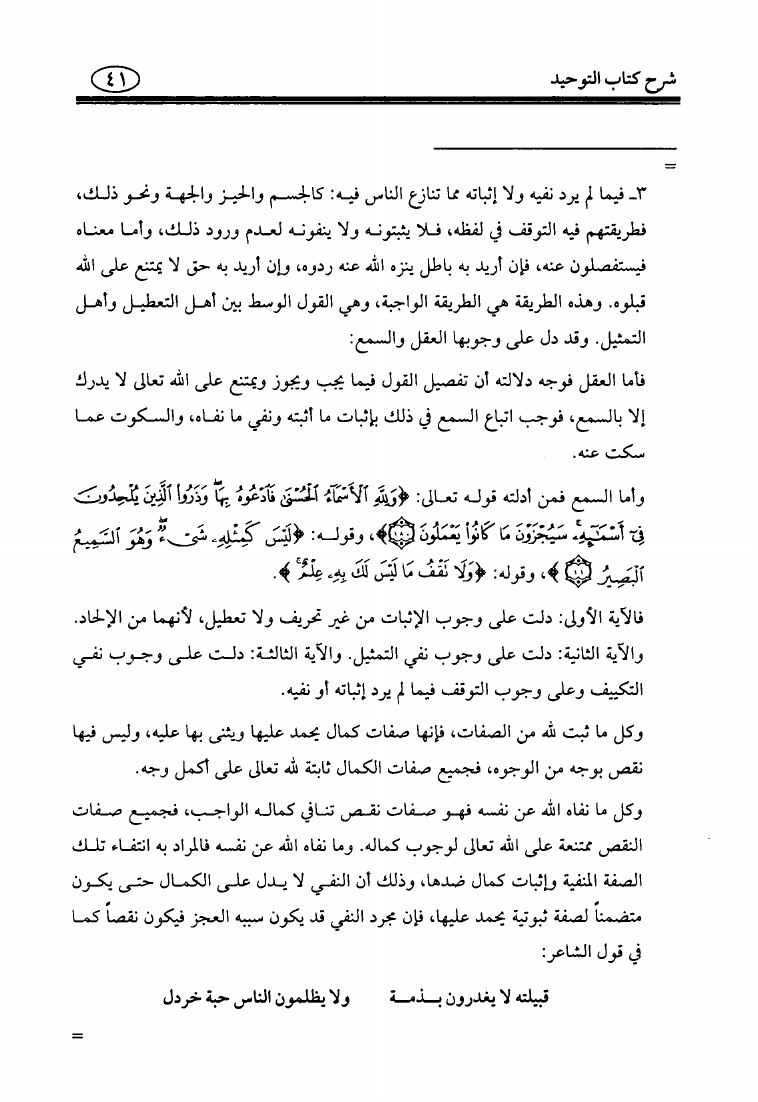 شرح كتاب التوحيد
٤١
=
٣ـ فيما لم يرد نفيه ولا إثباته مما تنازع الناس فيه: كالجسم والحيز والجهة ونحو ذلك،
فطريقتهم فيه التوقف في لفظه، فلا يثبتونه ولا ينفونه لعدم ورود ذلك، وأما معناه
فيستفصلون عنه، فإن أريد به باطل ينزه الله عنه ردوه، وإن أريد به حق لا يمتنع على الله
قبلوه. وهذه الطريقة هي الطريقة الواجبة، وهي القول الوسط بين أهل التعطيل وأهل
التمثيل. وقد دل على وجوبها العقل والسمع:
فأما العقل فوجه دلالته أن تفصيل القول فيما يجب ويجوز ويمتنع على الله تعالى لا يدرك
إلا بالسمع، فوجب اتباع السمع في ذلك بإثبات ما أثبته ونفي ما نفاه، والسكوت عما
سكت عنه.
وأما السمع فمن أدلته قوله تعالى: ﴿وَلِلَّهِ الْأَسْمَاءُ الْحُسْنَىٰ فَادْعُوهُ بِهَا ۖ وَذَرُوا الَّذِينَ يُلْحِدُونَ
فِي أَسْمَائِهِ ۚ سَيُجْزَوْنَ مَا كَانُوا يَعْمَلُونَ ﴿١٨٠﴾﴾، وقوله: ﴿لَيْسَ كَمِثْلِهِ شَيْءٌ ۖ وَهُوَ السَّمِيعُ
الْبَصِيرُ ﴿١١﴾﴾، وقوله: ﴿وَلَا تَقْفُ مَا لَيْسَ لَكَ بِهِ عِلْمٌ ۚ﴾.
فالآية الأولى: دلت على وجوب الإثبات من غير تحريف ولا تعطيل، لأنهما من الإلحاد.
والآية الثانية: دلت على وجوب نفي التمثيل. والآية الثالثة: دلت على وجوب نفي
التكييف وعلى وجوب التوقف فيما لم يرد إثباته أو نفيه.
وكل ما ثبت لله من الصفات، فإنها صفات كمال يحمد عليها ويثنى بها عليه، وليس فيها
نقص بوجه من الوجوه، فجميع صفات الكمال ثابتة لله تعالى على أكمل وجه.
وكل ما نفاه الله عن نفسه فهو صفات نقص تنافي كماله الواجب، فجميع صفات
النقص ممتنعة على الله تعالى لوجوب كماله. وما نفاه الله عن نفسه فالمراد به انتفاء تلك
الصفة المنفية وإثبات كمال ضدها، وذلك أن النفي لا يدل على الكمال حتى يكون
متضمناً لصفة ثبوتية يحمد عليها، فإن مجرد النفي قد يكون سببه العجز فيكون نقصاً كما
في قول الشاعر:
قبيلته لا يغدرون بذمة ولا يظلمون الناس حبة خردل
=